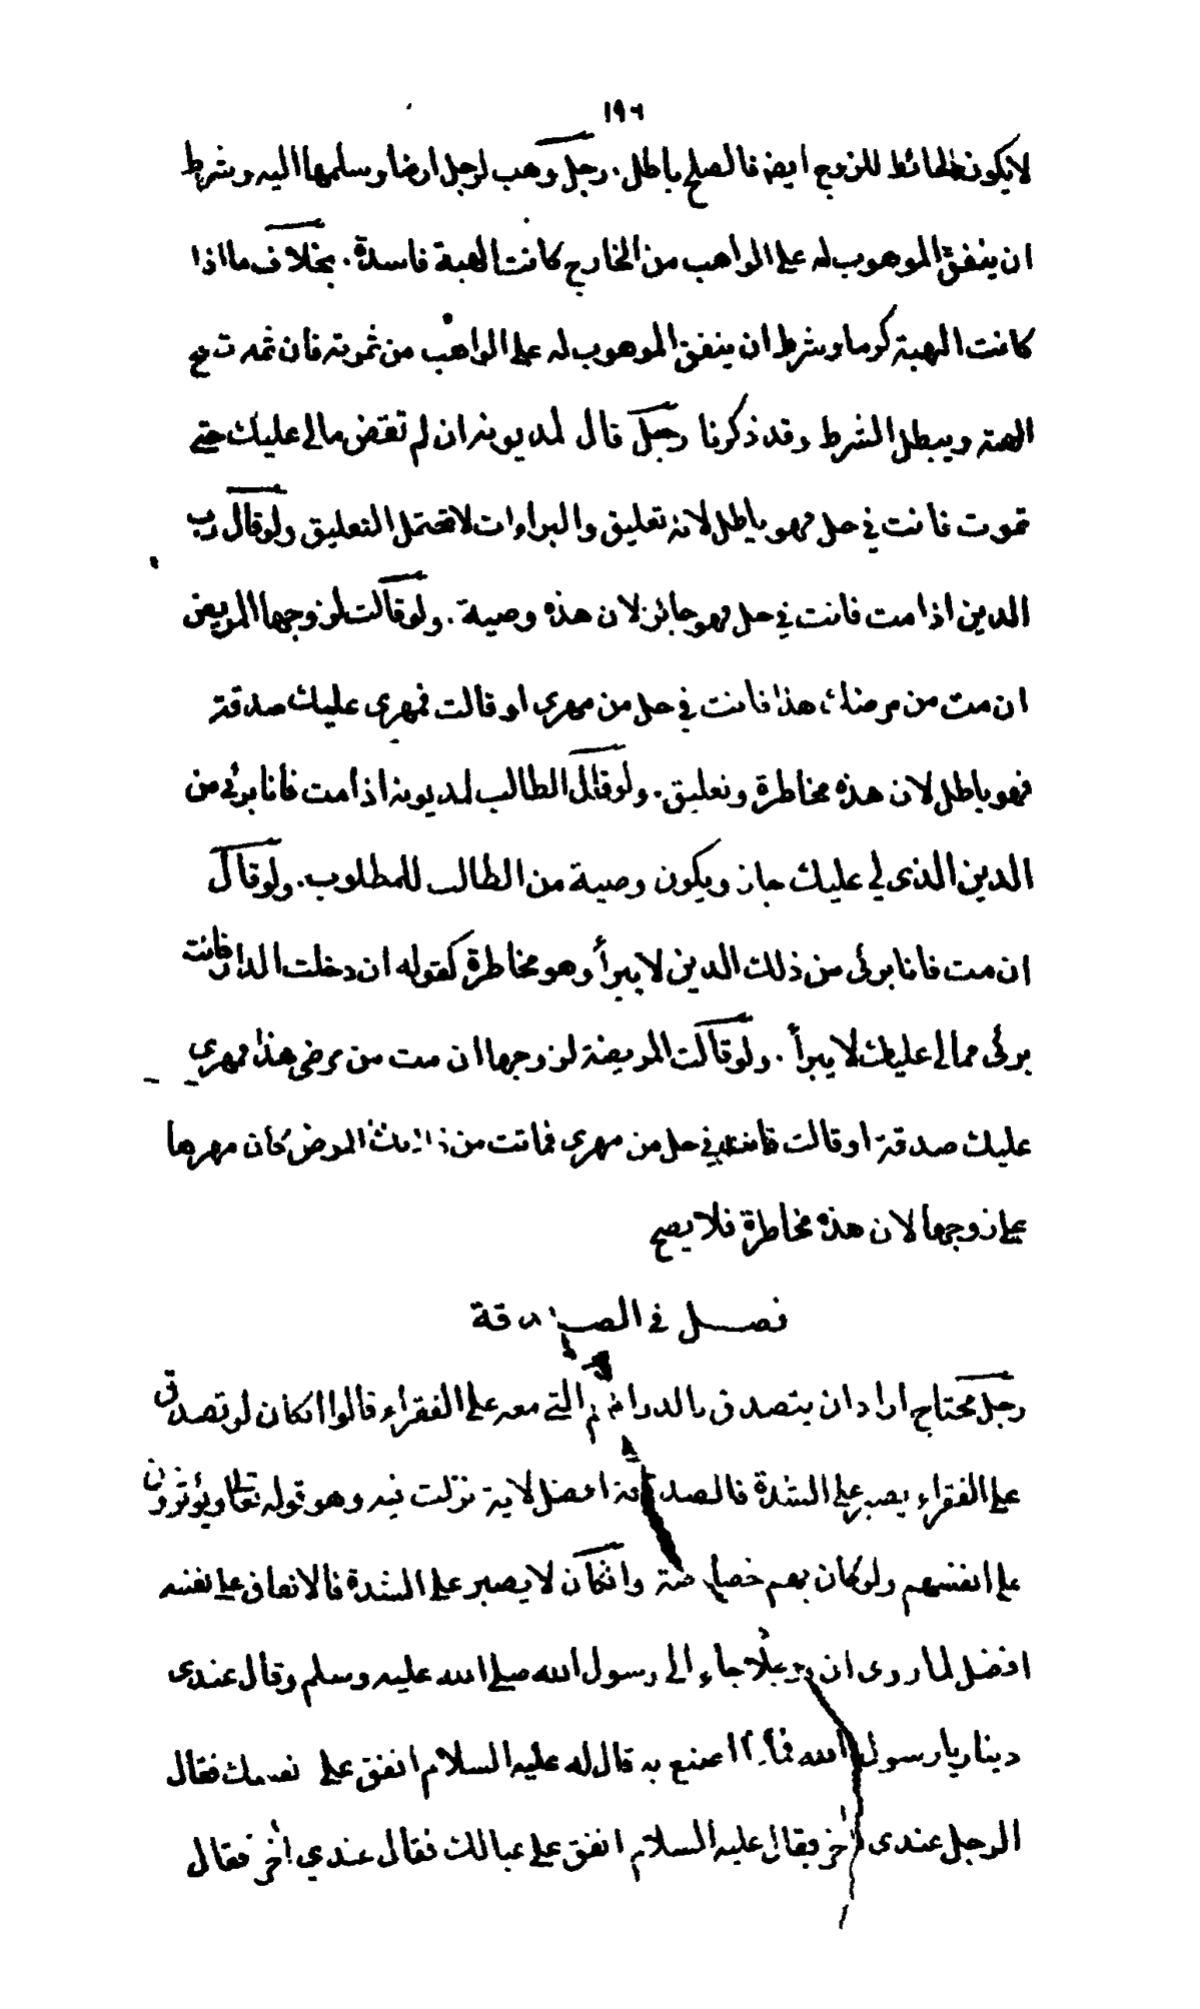 ١٩٦
لا يكون الحائط للزوج ايضا فالصلح باطل. رجل وهب لرجل ارضا وسلمها اليه وشرط
ان ينفق الموهوب له على الواهب من الخارج كانت الهبة فاسدة. بخلاف ما اذا
كانت الهبة كرما وشرط ان ينفق الموهوب له على الواهب من ثمرته فان ثمه تصح
الهبة ويبطل الشرط وقد ذكرنا رجل قال لمديونه ان لم تقض مالي عليك حتى
تموت فانت في حل فهو باطل لانه تعليق والبراءات لا تحتمل التعليق ولو قال رب
الدين اذا مت فانت في حل فهو جائز لان هذه وصية. ولو قالت لزوجها المريض
ان مت من مرضك هذا فانت في حل من مهري او قالت فمهري عليك صدقة
فهو باطل لان هذه مخاطرة وتعليق. ولو قال الطالب لمديونه اذا مت فانا برئ من
الدين الذى لي عليك جاز ويكون وصية من الطالب للمطلوب. ولو قال
ان مت فانا برئ من ذلك الدين لا يبرأ وهو مخاطرة كقوله ان دخلت الدار فانت
برئ مما لي عليك لا يبرأ. ولو قالت المريضة لزوجها ان مت من مرضى هذا فمهري
عليك صدقة او قالت فانت في حل من مهري فماتت من ذلك المرض كان مهرها
على زوجها لان هذه مخاطرة فلا يصح
فصل في الصدقة
رجل محتاج اراد ان يتصدق بالدراهم التي معه على الفقراء قالوا ان كان لو تصدق
على الفقراء يصبر على الشدة فالصدقة افضل لاية نزلت فيه وهو قوله تعالى ويؤثرون
على انفسهم ولو كان بهم خصاصة وان كان لا يصبر على الشدة فالانفاق على نفسه
افضل لما روى ان رجلا جاء الى رسول الله صلى الله عليه وسلم وقال عندى
دينار يا رسول الله فما اصنع به قال له عليه السلام انفق على نفسك فقال
الرجل عندى اخر فقال عليه السلام انفق على عيالك فقال عندي اخر فقال